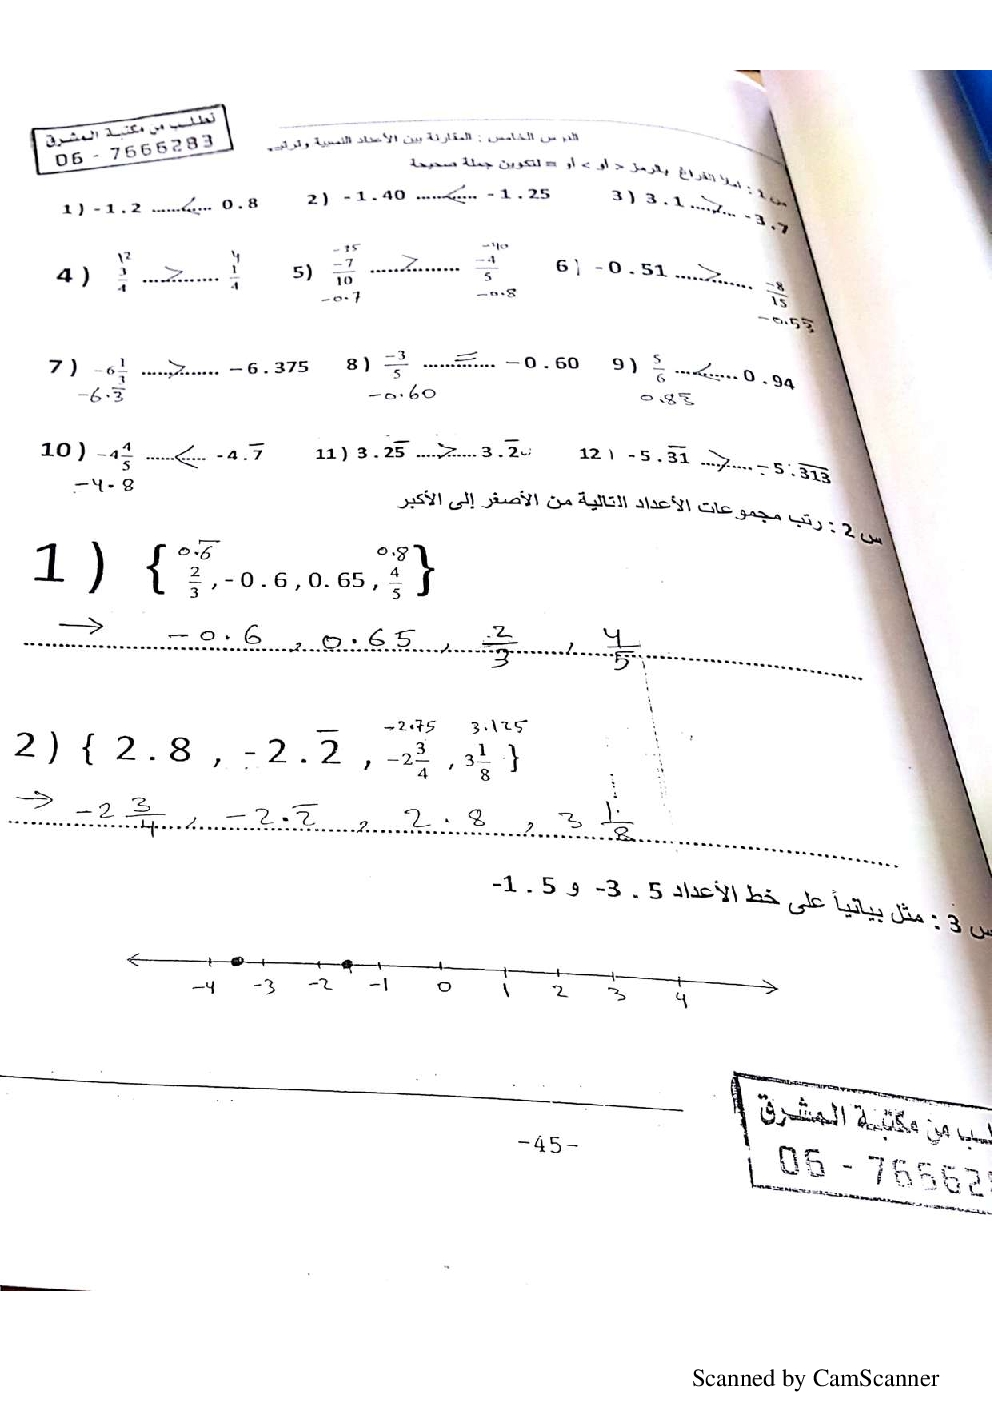 تطلب من مكتبة المشرق
06 - 7666283
الدرس الخامس : المقارنة بين الأعداد النسبية وترتيب
س 1 : املأ الفراغ بالرمز < أو > أو = لتكوين جملة صحيحة
1) -1.2 ......<.... 0.8 2) -1.40 ......<.... -1.25 3) 3.1 .....>..... -3.7
12 4 -35 -40
4) 3/4 ....>........ 1/4 5) -7/10 .......>....... -4/5 6) -0.51 ......>....... -8/15
-0.7 -0.8 -0.53̅
7) -6 1/3 ......>....... -6.375 8) -3/5 ......=...... -0.60 9) 5/6 .....<..... 0.94
-6.3̅ -0.60 0.83̅
10) -4 4/5 ......<.... -4.7̅ 11) 3.2̅5̅ .....>.... 3.2̅ 12) -5.3̅1̅ ...>..... -5.3̅1̅3̅
-4.8
س 2 : رتب مجموعات الأعداد التالية من الأصغر إلى الأكبر
0.6̅ 0.8
1) { 2/3 , -0.6 , 0.65 , 4/5 }
→ -0.6 , 0.65 , 2/3 , 4/5
-2.75 3.125
2) { 2.8 , -2.2̅ , -2 3/4 , 3 1/8 }
→ -2 3/4 , -2.2̅ , 2.8 , 3 1/8
س 3 : مثل بيانياً على خط الأعداد 3.5- و 1.5-
-4 -3 -2 -1 0 1 2 3 4
-45-
تطلب من مكتبة المشرق
06 - 766628
Scanned by CamScanner